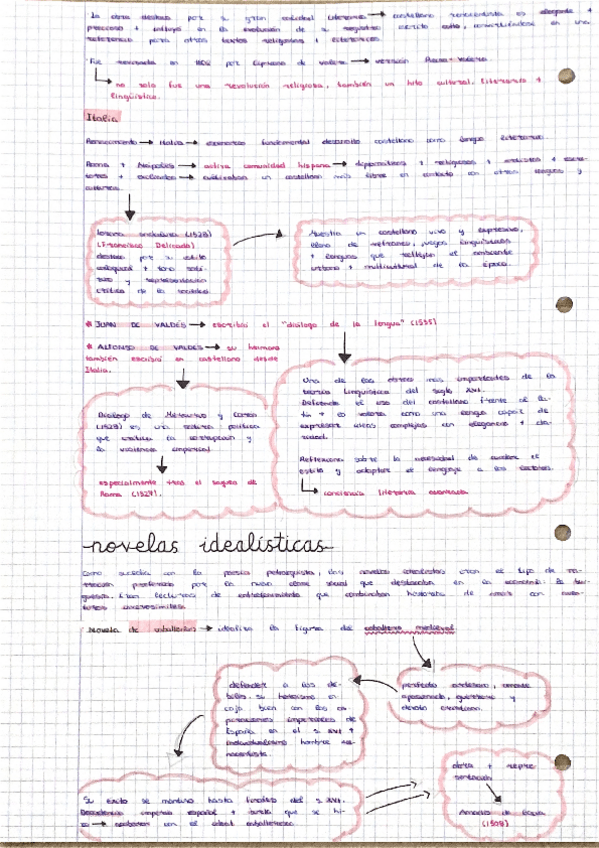 La obra destaca por su gran calidad literaria → castellano renacentista es elegante +
preciso + influyó en la evolución de su registro escrito culto, convirtiéndose en una
referencia para otros textos religiosos + literarios.
Fue revisada en 1602 por Cipriano de Valera → versión Reina-Valera
no solo fue una revolución religiosa, también un hito cultural, literario +
lingüístico.
Italia
Renacimiento → Italia → escenario fundamental desarrollo castellano como lengua literaria.
Roma + Nápoles → activa comunidad hispana → diplomáticos + religiosos + artistas + escri-
tores + exiliados → cultivaban un castellano más libre en contacto con otras lenguas y
culturas.
lozana andaluza (1528)
(Francisco Delicado)
destaca por su estilo
coloquial + tono satí-
rico y representación
crítica de la sociedad
Muestra un castellano vivo y expresivo,
lleno de refranes, juegos lingüísticos
+ lenguas que reflejan el ambiente
urbano + multicultural de la época.
* JUAN DE VALDÉS → escribió el "diálogo de la lengua" (1535)
* ALFONSO DE VALDÉS → su hermano
también escribió en castellano desde
Italia.
Diálogo de Mercurio y Carón
(1528) es una sátira política
que critica la corrupción y
la violencia imperial
especialmente tras el saqueo de
Roma (1527).
Una de las obras más importantes de la
teoría lingüística del siglo XVI.
Defiende el uso del castellano frente al la-
tín + lo valora como una lengua capaz de
expresar ideas complejas con elegancia + cla-
ridad.
Reflexiona sobre la necesidad de cuidar el
estilo y adaptar el lenguaje a los
conciencia literaria avanzada
novelas idealísticas
Como sucedía con la poesía petrarquista, las novelas idealistas eran el tipo de na-
rración preferido por la nueva clase social que destacaba en la economía: la bur-
guesía. Eran lecturas de entretenimiento que combinaban historias de amor con
inverosímiles.
Novela de caballerías → idealiza la figura del caballero medieval
perfecto cristiano, amante
apasionado, guerrero y
devoto cristiano.
defender a los dé-
biles. su heroísmo en-
cajó bien con las as-
piraciones imperiales de
España en el s. XVI +
individualismo hombre re-
nacentista.
Su éxito se mantuvo hasta finales del s. XVI.
Decadencia imperio español + burla que se hi-
zo → acabaron con el ideal caballeresco.
obra + repre-
sentación
Amadís de Gaula
(1508)